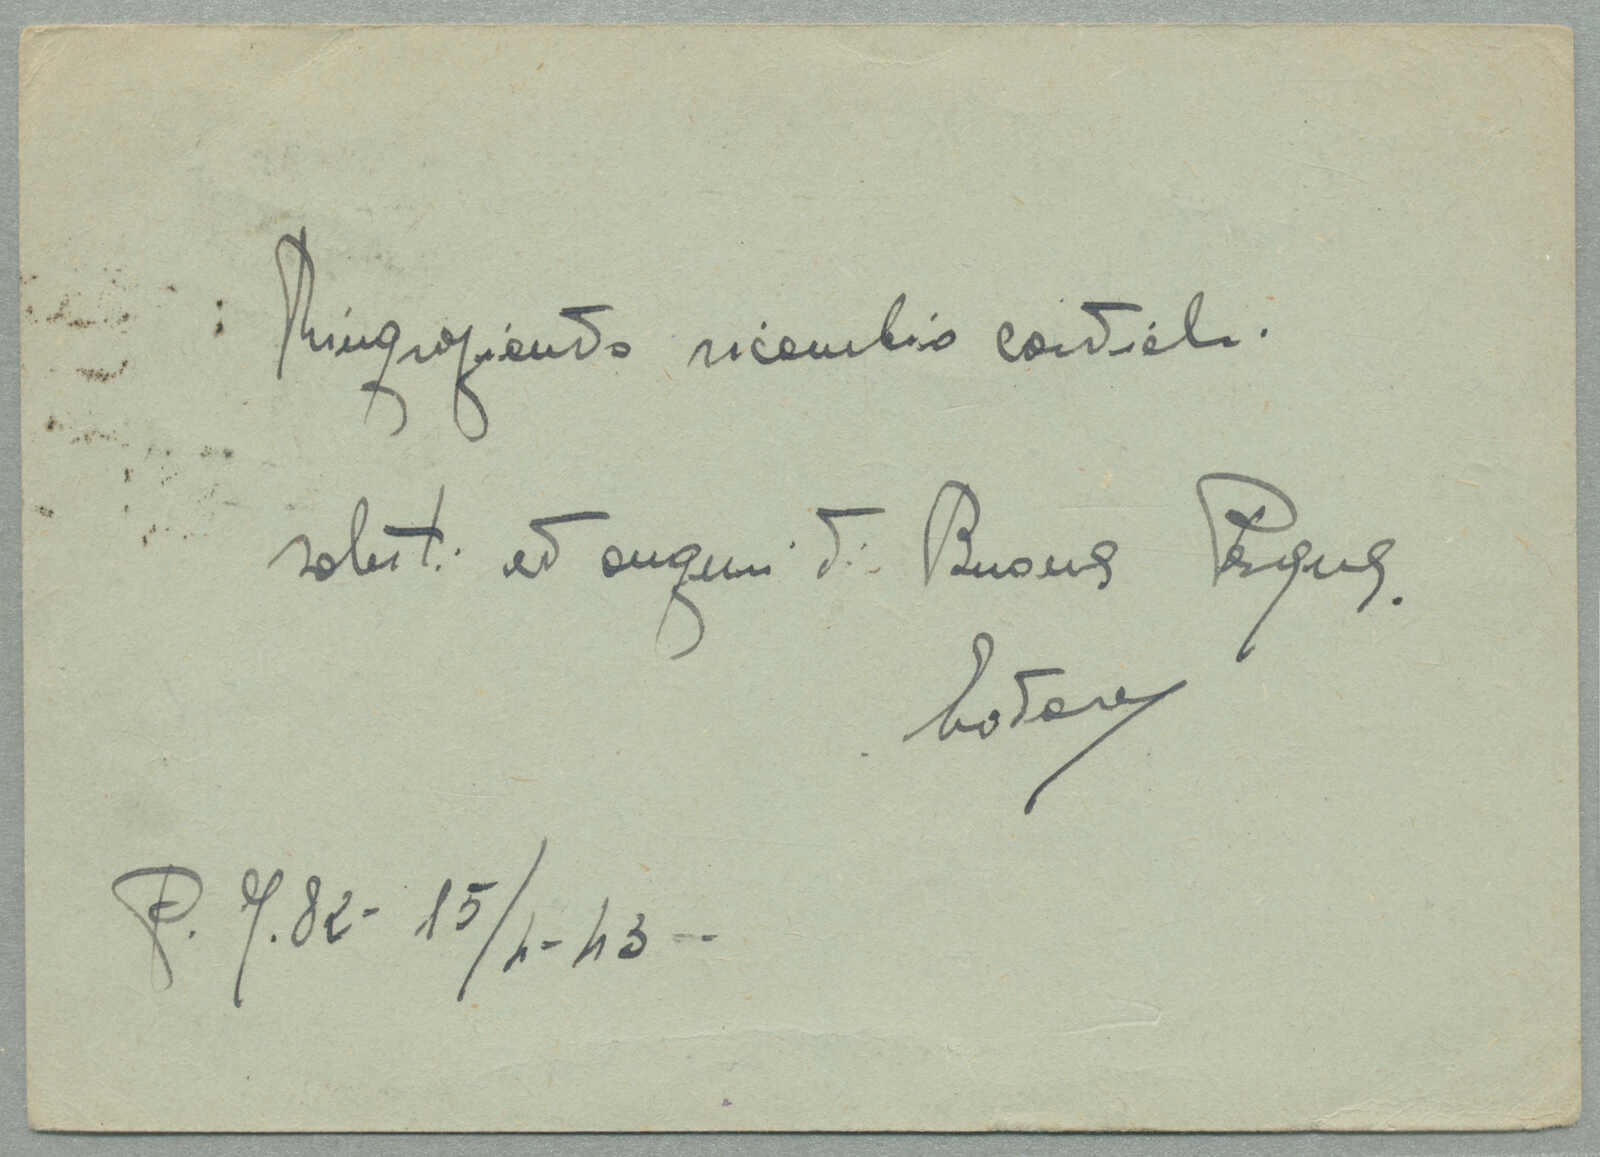 Ringraziando ricambio cordiali
saluti ed auguri di Buona Pasqua.
P. M. 82 - 15/4-43 -